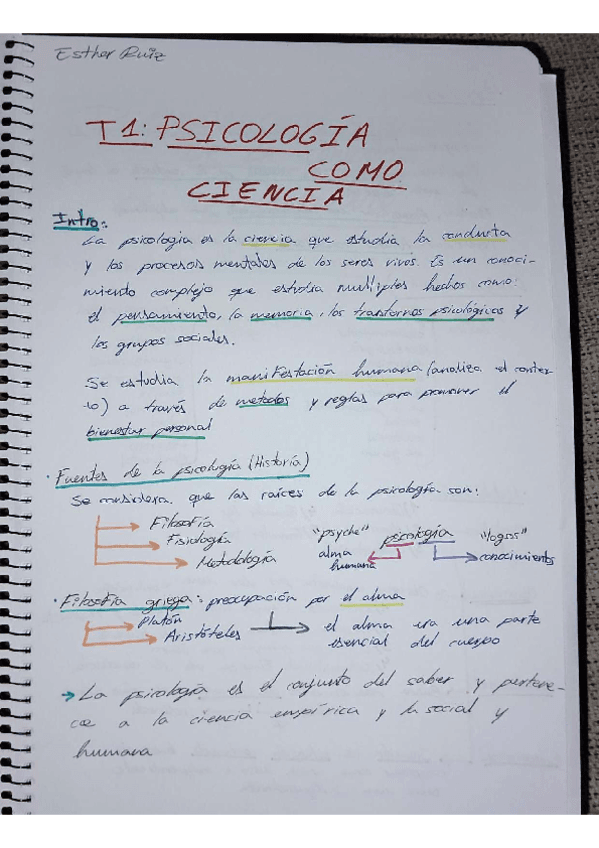 Esther Ruiz
T1: PSICOLOGÍA
COMO
CIENCIA
Intro:
La psicología es la ciencia que estudia la conducta
y los procesos mentales de los seres vivos. Es un conoci-
miento complejo que estudia multiples hechos como:
el pensamiento, la memoria, los trastornos psicológicos y
los grupos sociales.
Se estudia la manifestación humana (analiza el contex-
to) a través de metodos y reglas para promover el
bienestar personal
· Fuentes de la psicología (Historia)
Se considera que las raíces de la psicología son:
Filosofía
Fisiología
Metodología
"psyche" psicología "logos"
alma humana conocimiento
· Filosofía griega: preocupación por el alma
Platón
Aristóteles
el alma era una parte
esencial del cuerpo
→ La psicología es el conjunto del saber y pertene-
ce a la ciencia empírica y la social y
humana